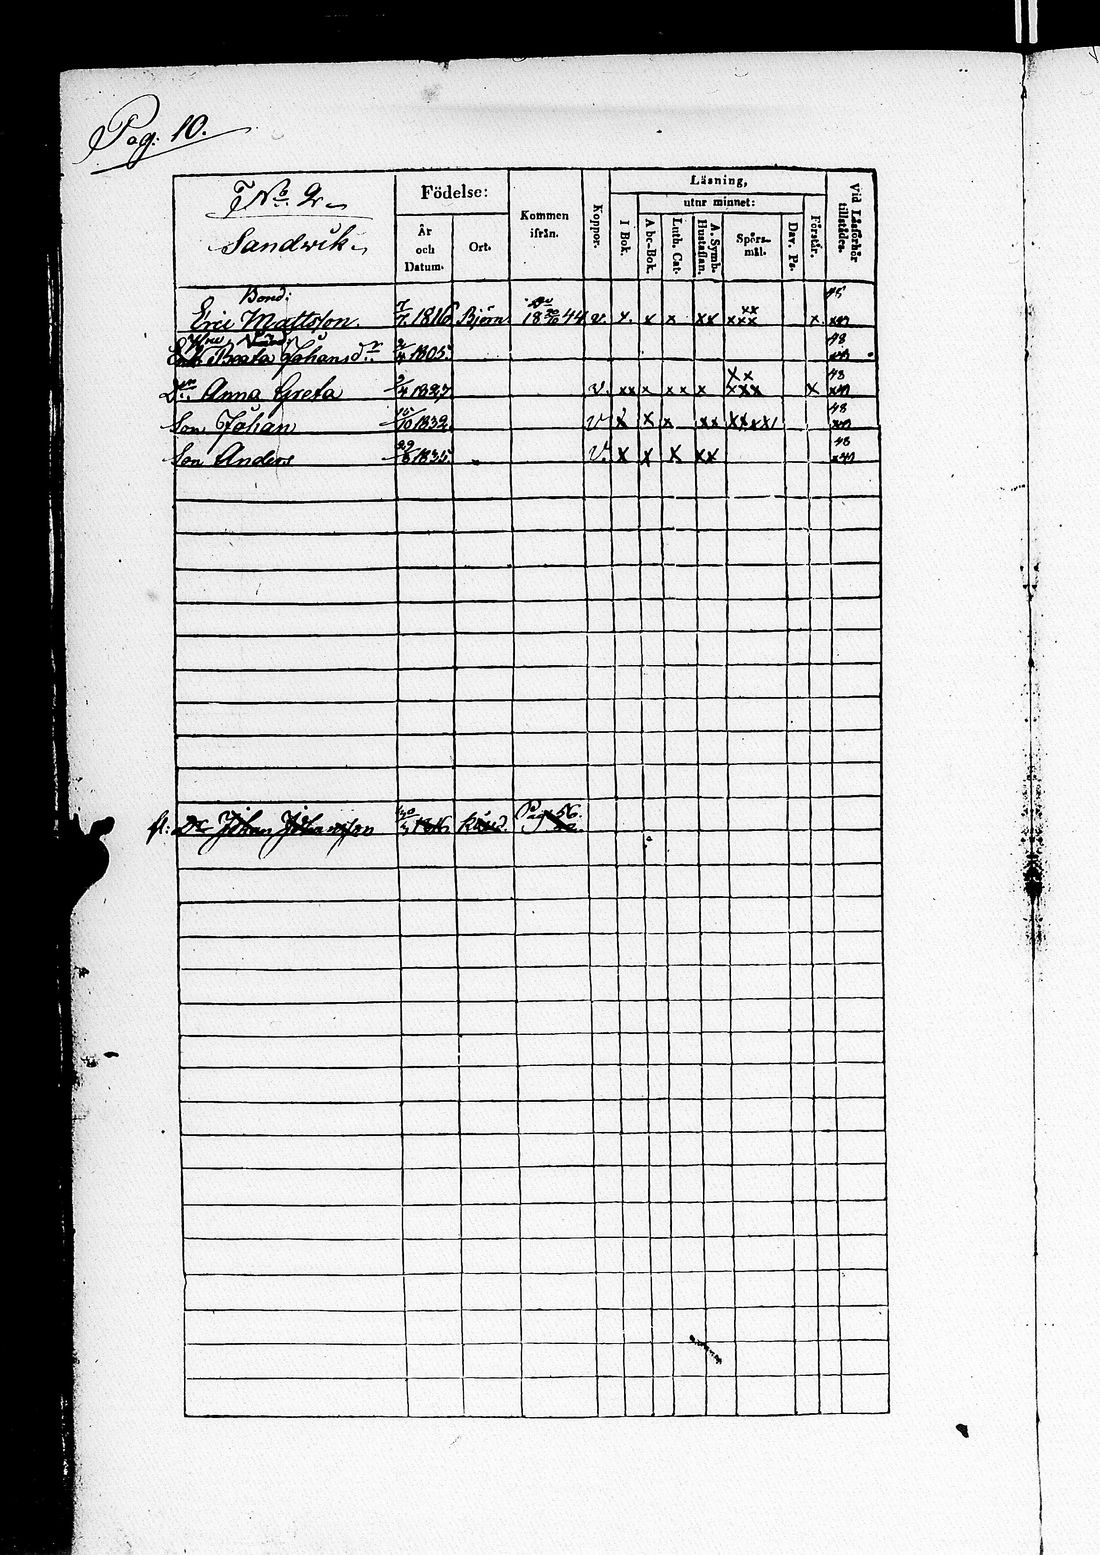 Pag: 10.
No. 2.
Sandwik.
Födelse:
År
och
Datum.
Ort.
Kommen
ifrån.
Koppor.
Läsning,
utur minnet:
I Bok.
Abc-Bok.
Luth. Cat.
A. Symb.
Hustaflan.
Spörs-
mål.
Dav. Ps.
Förstår.
Vid Läsförhör
tillstädes.
Bond:
Eric Mattsson. 1816. Björn 18 44 v. x. x x xx xxx xx x. 45
Beata Johansdr 1805. 48
Dr. Anna Greta 1827 v. xx x xx x xxx xx x 48
Son Johan 1832. v x x x xx xxxx 48
Son Anders 29/8 1835. v. x x x xx 48
fl: Dr Johan Johansson 1816 Pag: 56.